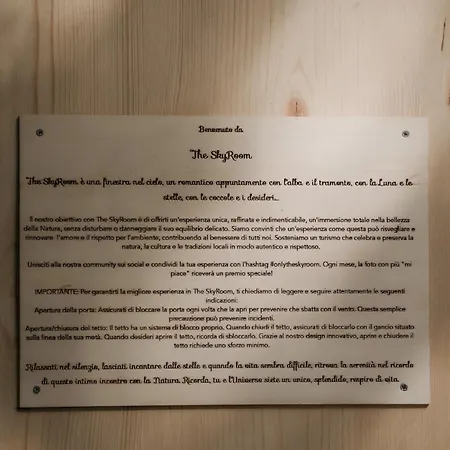 Benvenuto da
The SkyRoom
The SkyRoom è una finestra nel cielo, un romantico appuntamento con l'alba e il tramonto, con la Luna e le
stelle, con le coccole e i desideri...
Il nostro obiettivo con The SkyRoom è di offrirti un'esperienza unica, raffinata e indimenticabile, un'immersione totale nella bellezza
della Natura, senza disturbare o danneggiare il suo equilibrio delicato. Siamo convinti che un'esperienza come questa può risvegliare e
rinnovare l'amore e il rispetto per l'ambiente, contribuendo al benessere di tutti noi. Sosteniamo un turismo che celebra e preserva la
natura, la cultura e le tradizioni locali in modo autentico e rispettoso.
Unisciti alla nostra community sui social e condividi la tua esperienza con l'hashtag #onlytheskyroom. Ogni mese, la foto con più "mi
piace" riceverà un premio speciale!
IMPORTANTE: Per garantirti la migliore esperienza in The SkyRoom, ti chiediamo di leggere e seguire attentamente le seguenti
indicazioni:
Apertura della porta: Assicurati di bloccare la porta ogni volta che la apri per prevenire che sbatta con il vento. Questa semplice
precauzione può prevenire incidenti.
Apertura/chiusura del tetto: Il tetto ha un sistema di blocco proprio. Quando chiudi il tetto, assicurati di bloccarlo con il gancio situato
sulla linea della sua metà. Quando desideri aprire il tetto, ricorda di sbloccarlo. Grazie al nostro design innovativo, aprire e chiudere il
tetto richiede uno sforzo minimo.
Rilassati nel silenzio, lasciati incantare dalle stelle e quando la vita sembra difficile, ritrova la serenità nel ricordo
di questo intimo incontro con la Natura. Ricorda, tu e l'Universo siete un unico, splendido, respiro di vita.